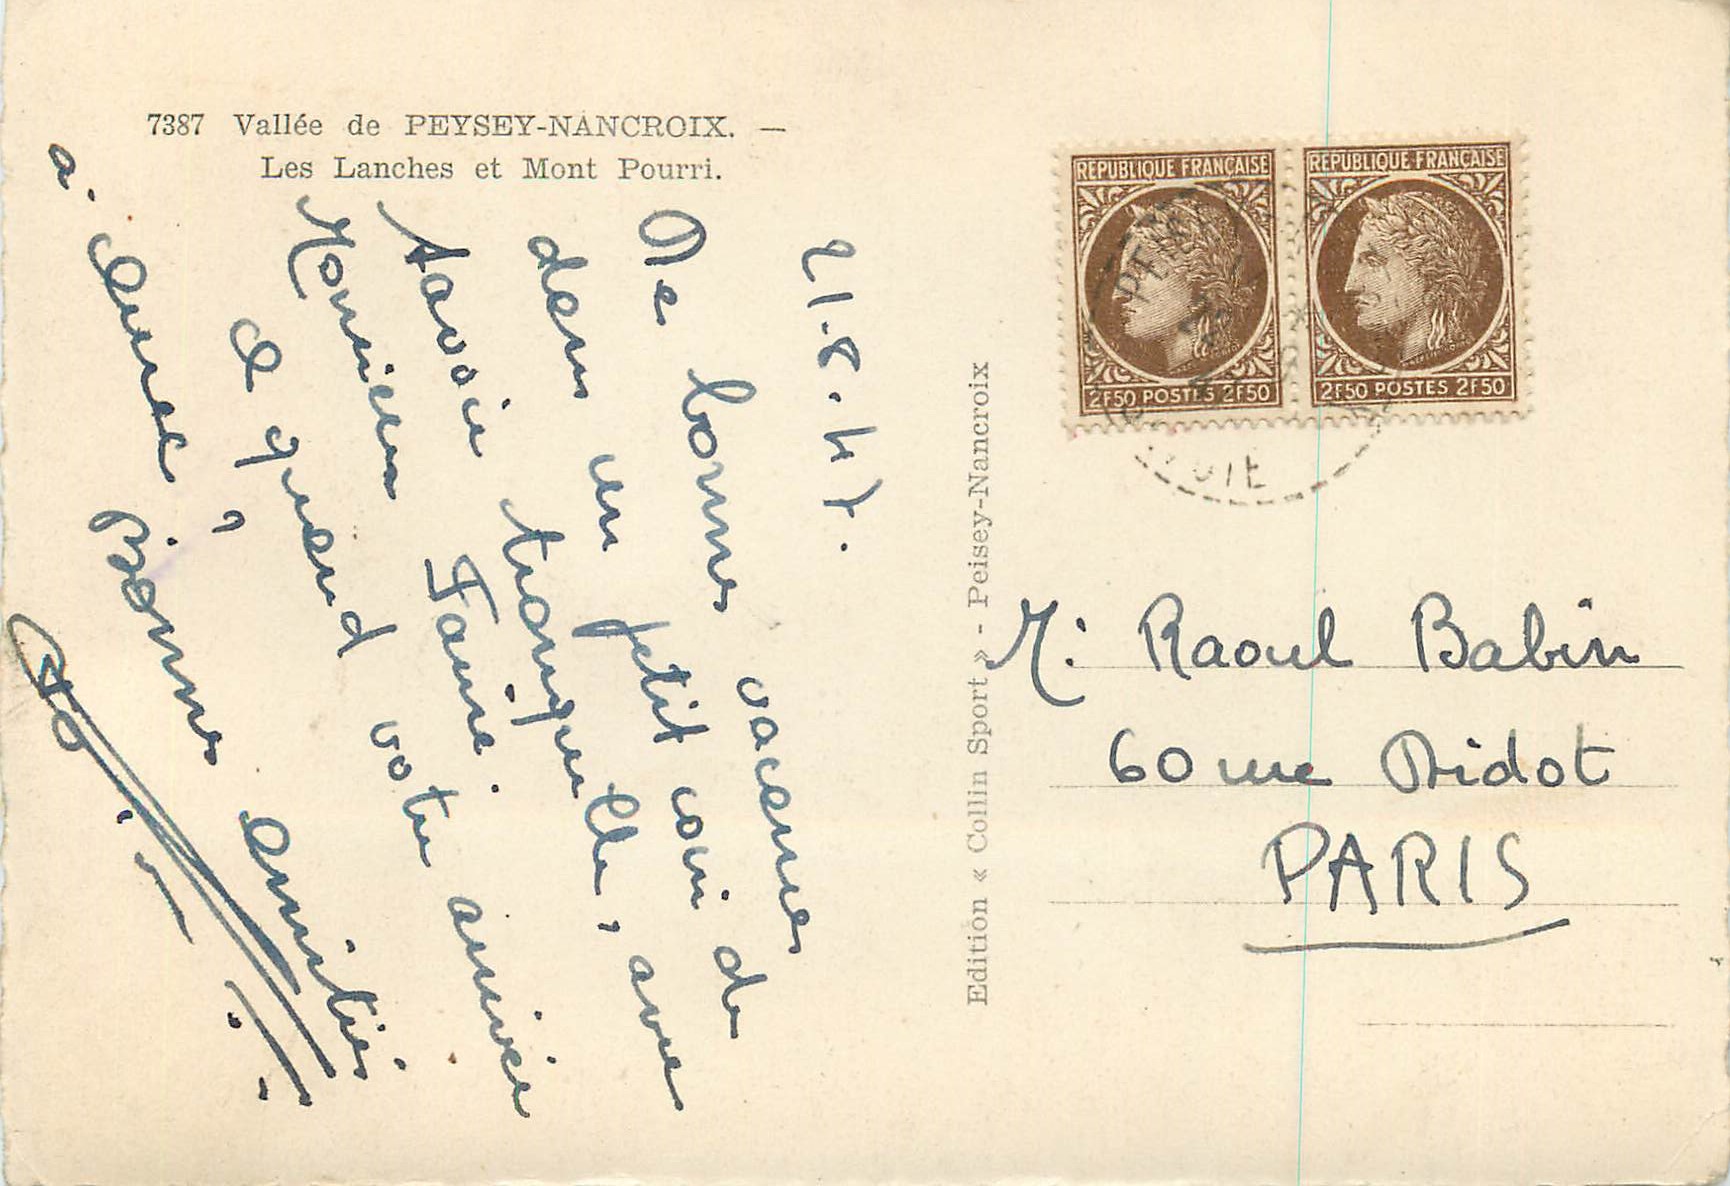 7387 Vallée de PEYSEY-NANCROIX. —
Les Lanches et Mont Pourri.
21.8.47.
De bonnes vacances
dans un petit coin de
Savoie tranquille, avec
Monsieur
à quand votre arrivée
à
? Bonnes amitiés
Edition « Collin Sport » - Peisey-Nancroix
REPUBLIQUE FRANÇAISE
2F50 POSTES 2F50
REPUBLIQUE FRANÇAISE
2F50 POSTES 2F50
M. Raoul Babin
60 rue Didot
PARIS